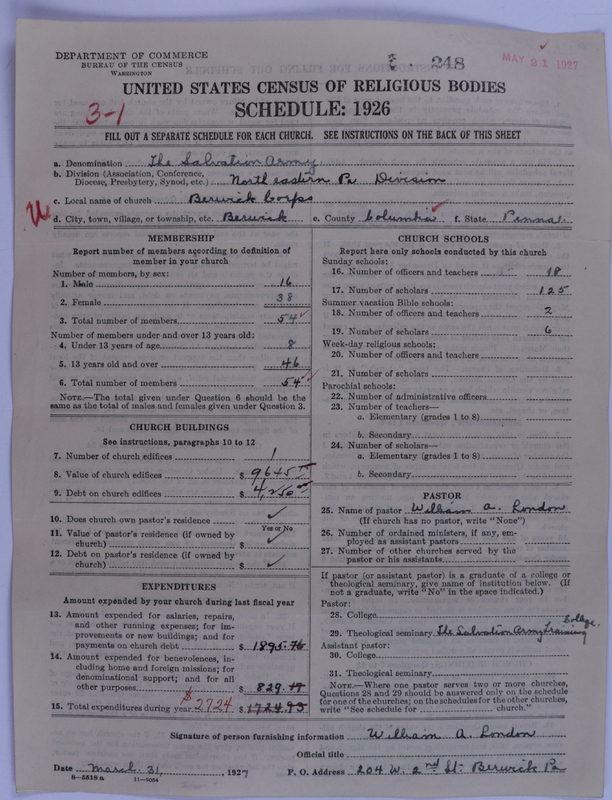 DEPARTMENT OF COMMERCE
BUREAU OF THE CENSUS
WASHINGTON
248
MAY 21 1927
UNITED STATES CENSUS OF RELIGIOUS BODIES
SCHEDULE: 1926
3-1
FILL OUT A SEPARATE SCHEDULE FOR EACH CHURCH. SEE INSTRUCTIONS ON THE BACK OF THIS SHEET
a. Denomination The Salvation Army
b. Division (Association, Conference, Diocese, Presbytery, Synod, etc.) North eastern Pa Division
c. Local name of church Berwick Corps
d. City, town, village, or township, etc. Berwick e. County Columbia f. State Penna.
MEMBERSHIP
Report number of members according to definition of
member in your church
Number of members, by sex:
1. Male 16
2. Female 38
3. Total number of members 54
Number of members under and over 13 years old:
4. Under 13 years of age 8
5. 13 years old and over 46
6. Total number of members 54
NOTE.—The total given under Question 6 should be
same as the total of males and females given under Question 3.
CHURCH BUILDINGS
See instructions, paragraphs 10 to 12
7. Number of church edifices 1
8. Value of church edifices $9645
9. Debt on church edifices $4,250
10. Does church own pastor's residence ✓
Yes or No
11. Value of pastor's residence (if owned by
church) $ ✓
12. Debt on pastor's residence (if owned by
church) $ ✓
EXPENDITURES
Amount expended by your church during last fiscal year
13. Amount expended for salaries, repairs,
and other running expenses; for im-
provements or new buildings; and for
payments on church debt $1895.76
14. Amount expended for benevolences, in-
cluding home and foreign missions; for
denominational support; and for all
other purposes $829.17
15. Total expenditures during year $2724 $1724.93
CHURCH SCHOOLS
Report here only schools conducted by this church
Sunday schools:
16. Number of officers and teachers 18
17. Number of scholars 125
Summer vacation Bible schools:
18. Number of officers and teachers 2
19. Number of scholars 6
Week-day religious schools:
20. Number of officers and teachers
21. Number of scholars
Parochial schools:
22. Number of administrative officers
23. Number of teachers—
a. Elementary (grades 1 to 8)
b. Secondary
24. Number of scholars—
a. Elementary (grades 1 to 8)
b. Secondary
PASTOR
25. Name of pastor William A. London
(If church has no pastor, write "None")
26. Number of ordained ministers, if any, em-
ployed as assistant pastors
27. Number of other churches served by the
pastor or his assistants
If pastor (or assistant pastor) is a graduate of a college or
theological seminary, give name of institution below. (If
not a graduate, write "No" in the space indicated.)
Pastor:
28. College
29. Theological seminary The Salvation Army Training College.
Assistant pastor:
30. College
31. Theological seminary
NOTE.—Where one pastor serves two or more churches,
Questions 28 and 29 should be answered only on the schedule
for one of the churches; on the schedules for the other churches,
write "See schedule for church."
Signature of person furnishing information William A. London
Official title
Date March 31, , 1927 P. O. Address 204 W. 2nd St. Berwick Pa
8-5519a 11-9034